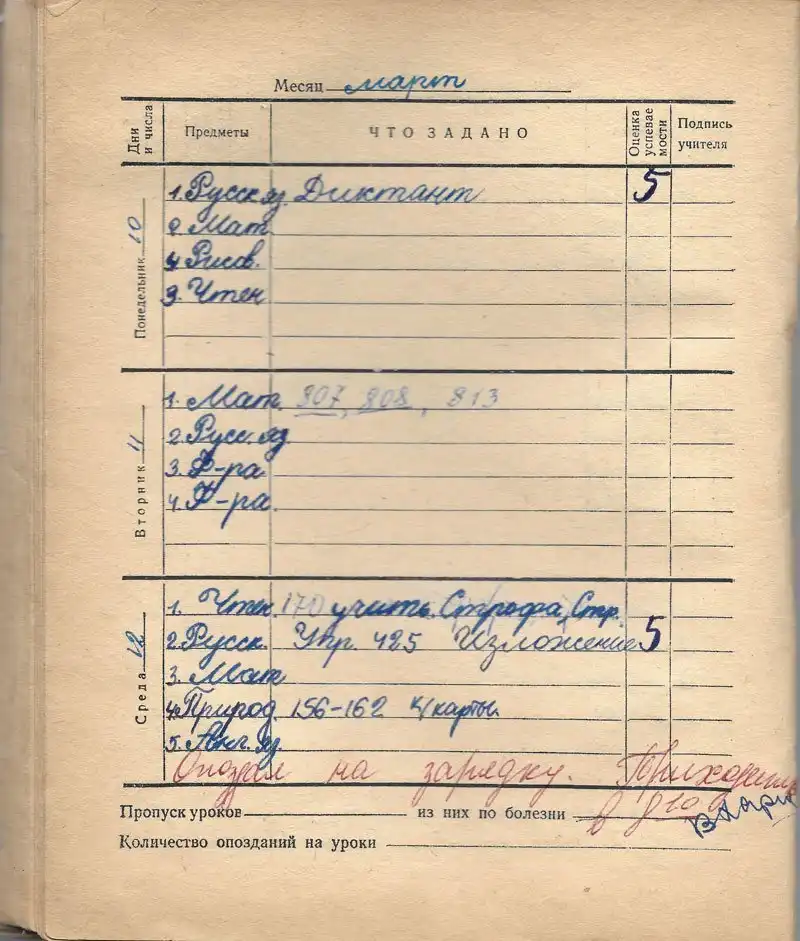 Месяц март
Дни и числа Предметы ЧТО ЗАДАНО Оценка успевае мости Подпись учителя
Понедельник 10
1. Русск яз. Диктант 5
2 Мат.
4 Рисов.
3. Чтен
Вторник 11
1. Мат. 807, 808, 813
2. Русс. яз
3. Ф-ра
4. Ф-ра
Среда 12
1. Чтен. 170 учить. Строфа, Стр.
2. Русск. Упр. 425 Изложение 5
3. Мат
4. Природ. 156-162 к/карты.
5. Анг. яз.
Опоздал на зарядку. Приходить
в 8 10
Пропуск уроков из них по болезни
Количество опозданий на уроки